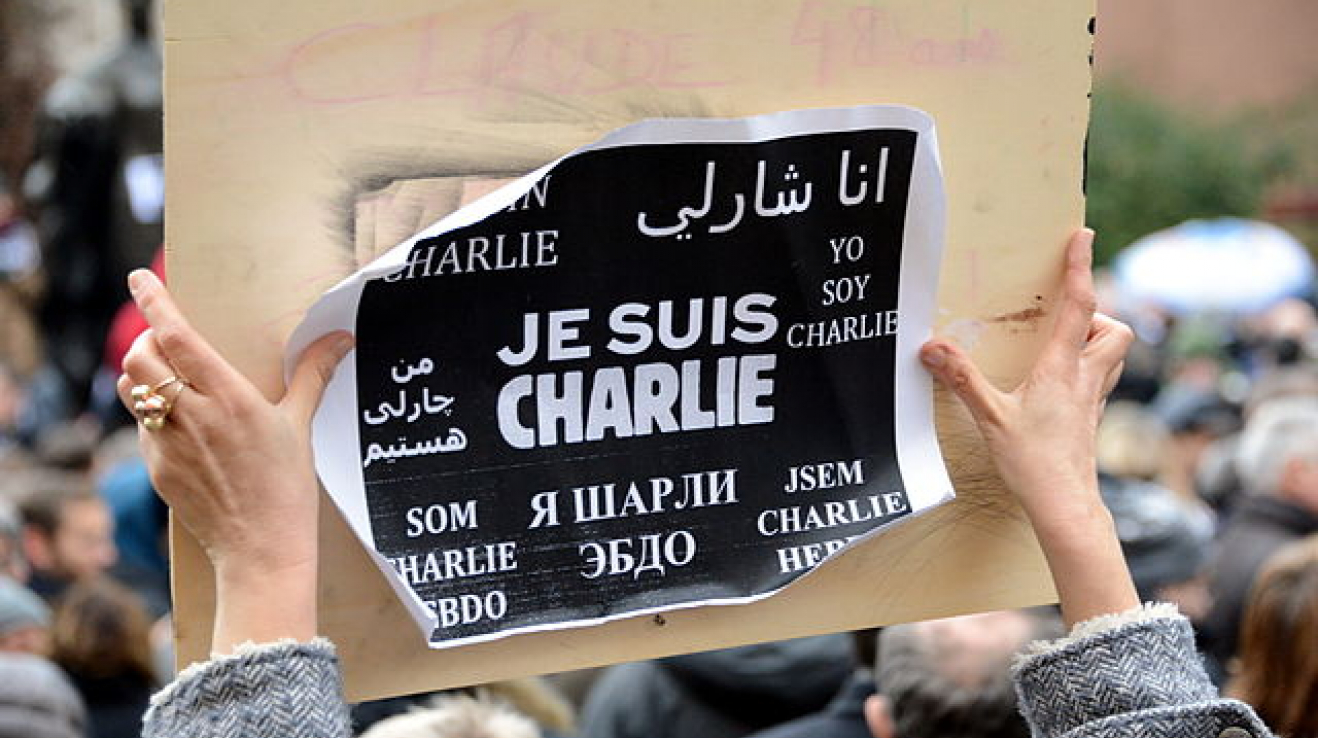 CLAUDE 48 ans
IN
CHARLIE
انا شارلي
YO
SOY
CHARLIE
JE SUIS
CHARLIE
من
چارلی
هستیم
SOM
CHARLIE
EBDO
Я ШАРЛИ
ЭБДО
JSEM
CHARLIE
HEB